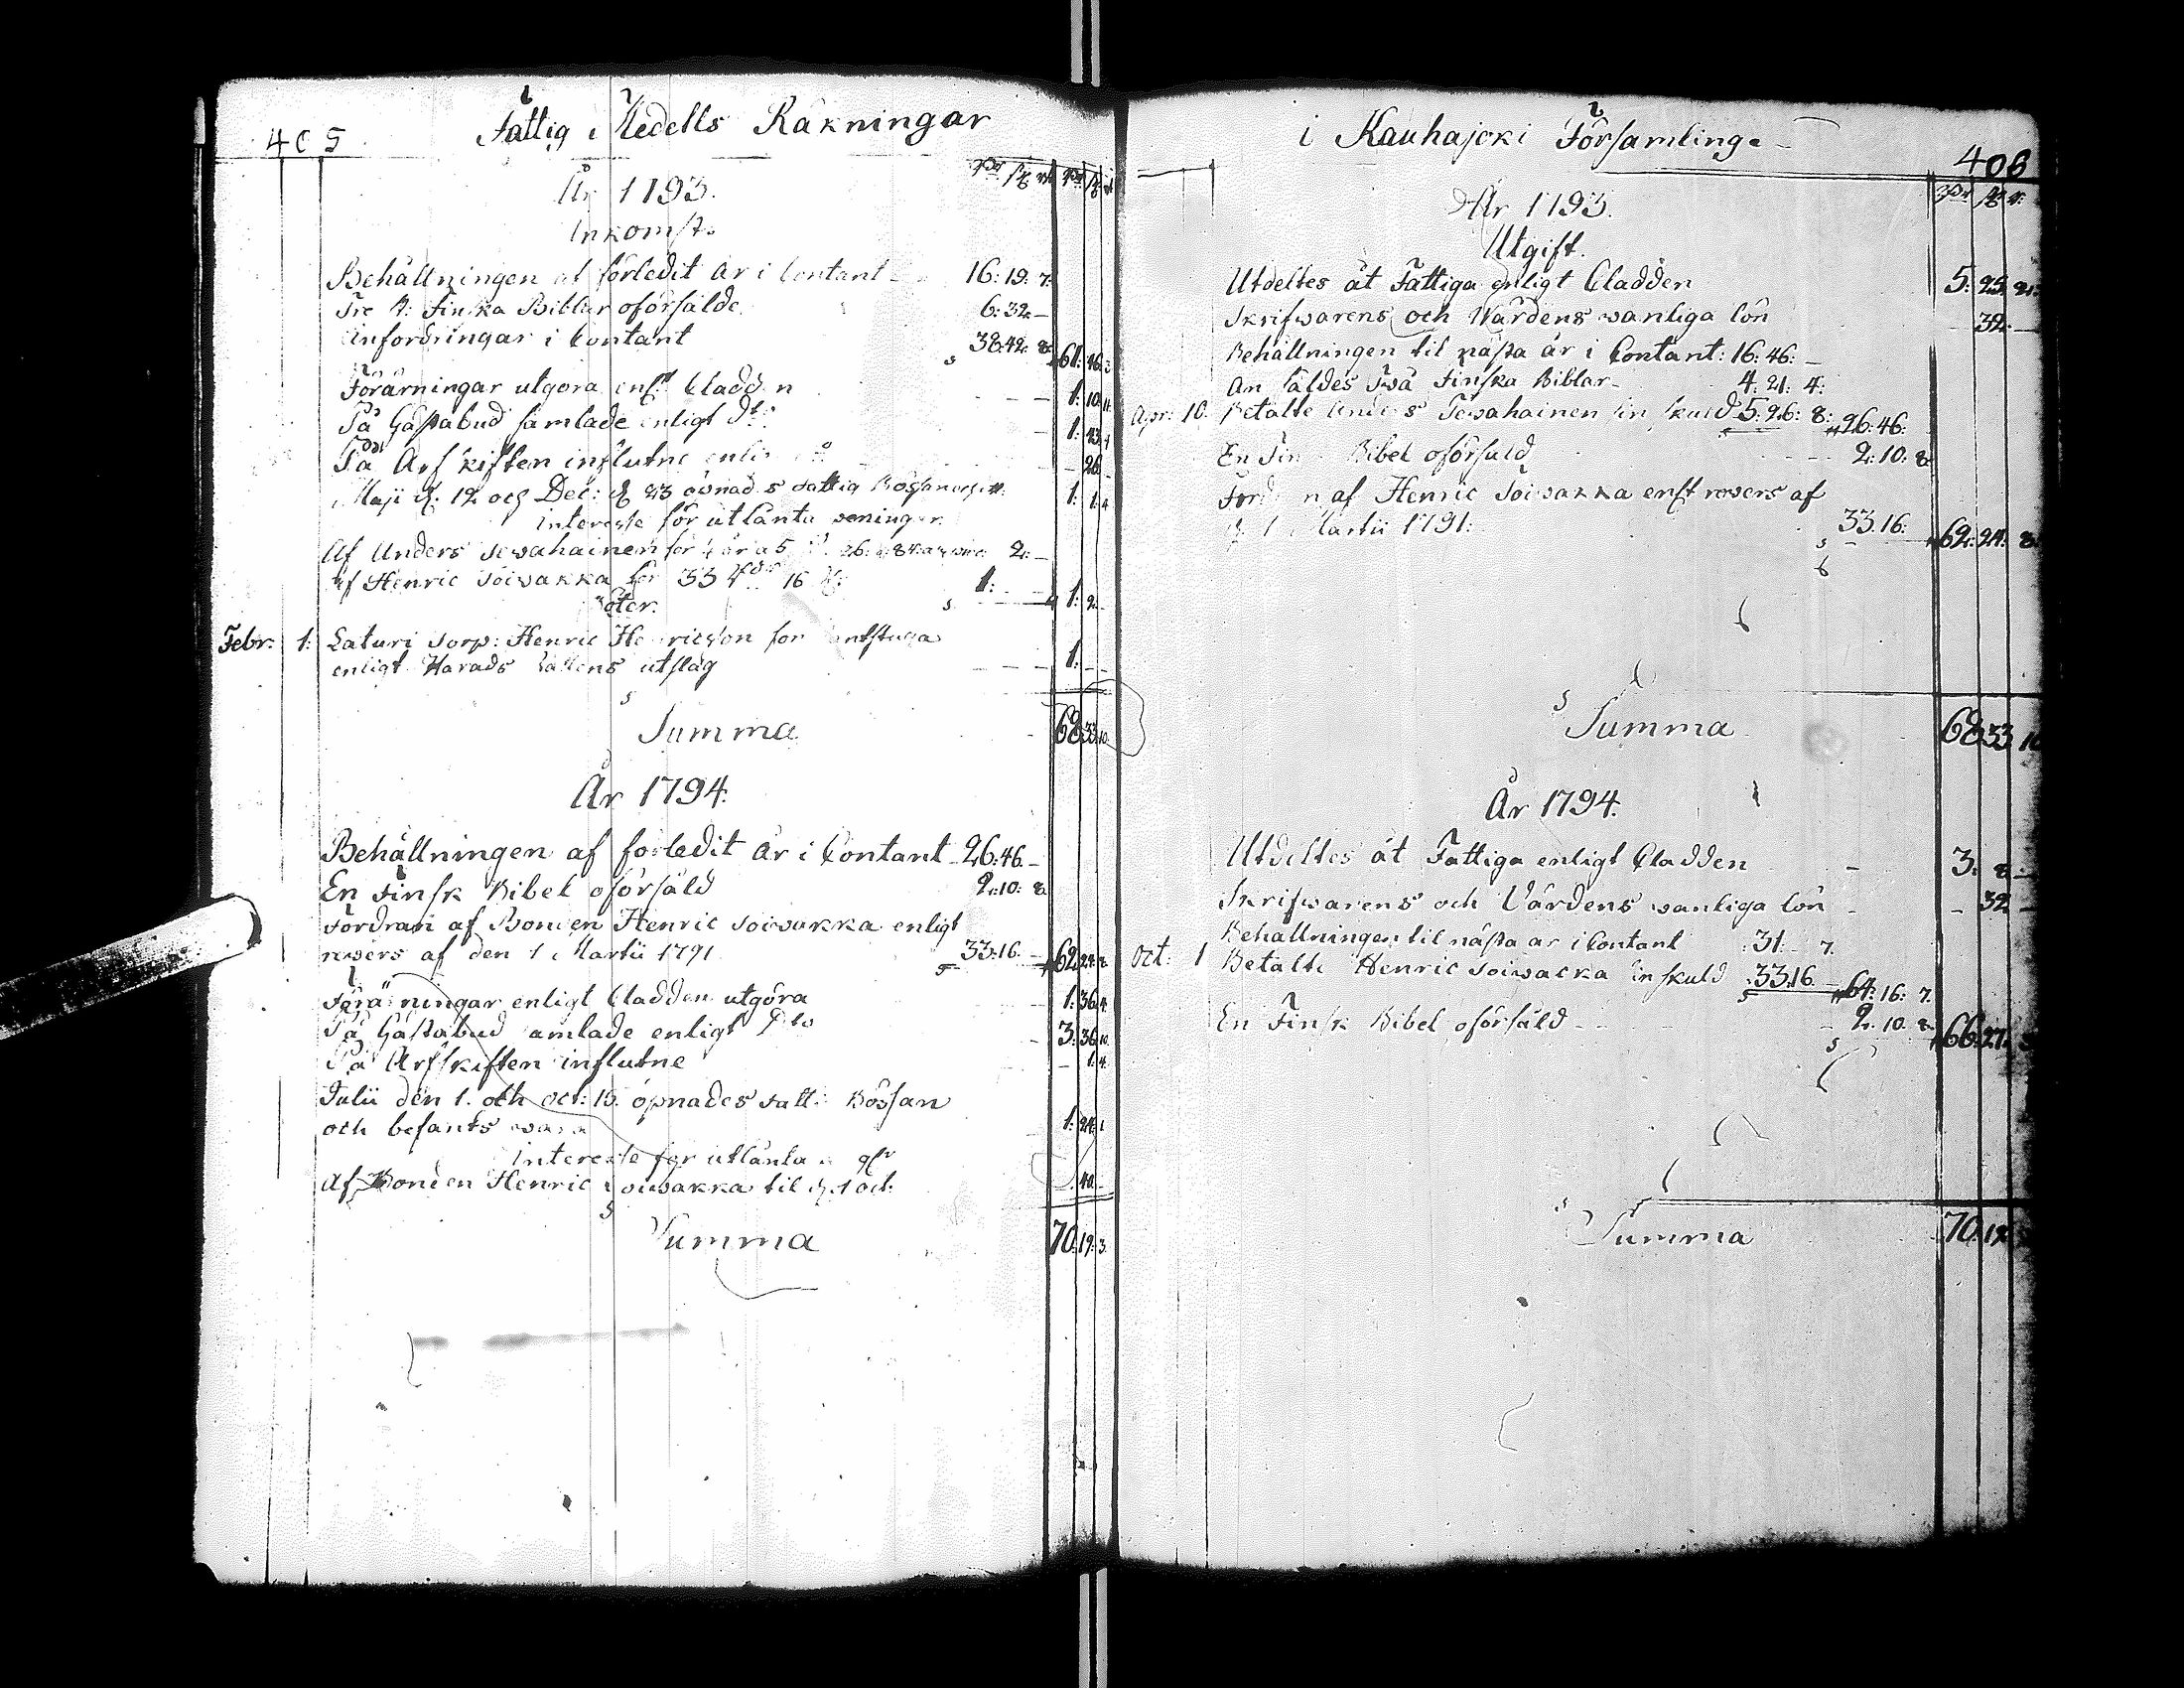 405
Fattig Medells Räkningar
År 1793.
Inkomst.
Behållningen af förledit år i Contant 16: 19: 7:
Tre st: Finska Biblar oförsålde 6: 32 —
Anfordringar i Contant 38: 42: 8 61: 46: 3
Förärningar utgöra enl Cladden 1: 10: 11
På Gästabud samlade enligt Dt: 1: 43:
På Arfskiften influtne 26
Maji d. 12 och Dec: d. öpnades Fattig Bössan 1: 1: 4
Interesse för utlänta penningar
Af Anders för år a 5 26: 8 2: —
af Henric Soiwakka för 33 16 1: 1: 2
Böter.
Febr: 1: Laturi Torp: Henric Henricsson för
enligt Härads Rättens utslag 1: — —
Summa 68: 33: 10.
År 1794:
Behållningen af förledit år i Contant 26: 46 —
En Finsk Bibel oförsåld 2: 10: 8
Fordran af Bonden Henric Soiwakka enligt
revers af den 1 Martii 1791 33: 16 — 62: 24: 8
Förärningar enligt Cladden utgöra 1: 36: 4
På Gästabud samlade enligt Dto 3: 36: 10
På Arfskiften influtne — 1: 4
Julii den 1. och Oct: 15. öpnades Fatt: Bössan
och befants wara 1: 24: 1
Interesse för utlänta
Af Bonden Henric Soiwakka til d. 1 Oct: 40.
Summa 70: 19: 3.
i Kauhajoki Församlinge
406
År 1793.
Utgift.
Utdeltes åt Fattiga enligt Cladden 5: 25: 2
Skrifwarens och Wärdens wanliga lön 32: —
Behållningen til nästa år i Contant: 16: 46: —
Än såldes twå Finska Biblar 4: 21: 4:
Apr: 10. Betalte Anders sin skuld 5: 26: 8: 26: 46:
En Finsk Bibel oförsåld 2: 10: 8
Fordran af Henric Soiwakka enligt revers af
d. 1 Martii 1791: 33: 16: 62: 24: 8
Summa 68: 33: 10
År 1794.
Utdeltes åt Fattiga enligt Cladden 3: 8: —
Skrifwarens och Värdens wanliga lön — 32 —
Behållningen til nästa år i Contant 31: 7.
Oct: 1 Betalte Henric Soiwakka sin skuld 33: 16 — 64: 16: 7.
En Finsk Bibel oförsåld 2: 10: 8 66: 27: 3
Summa 70: 19: 3